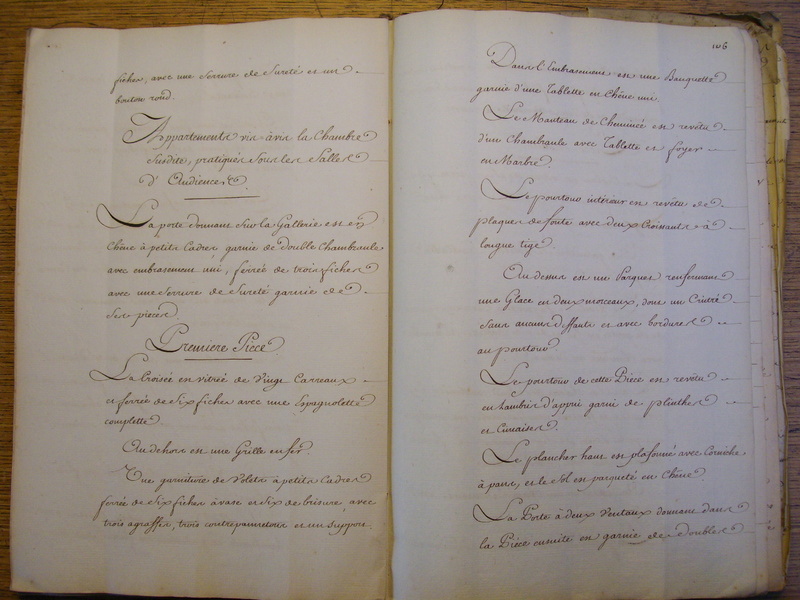 fiches, avec une Serrure de Sureté et un
bouton rond.
Appartement vis-à-vis la Chambre
Susdite, pratiqué sous les Salles
d'Audience &.
La porte donnant sur la Gallerie est en
Chêne à petits Cadres garnie de double Chambranle
avec embrasement uni, ferrée de trois fiches
avec une Serrure de Sureté garnie de
Ses pieces.
Premiere Piece
La Croisée est vitrée de Vingt Carreaux
et ferrée de Six fiches avec une Espagnolette
complette.
Au dehors est une Grille en fer.
Une garniture de Volets à petits Cadres
ferrée de Six fiches à vase et Six de brisure, avec
trois agraffes, trois contrepanetons et un Support.
106
Dans l'Embrasement est une Banquette
garnie d'une Tablette en Chêne uni.
Le Manteau de Cheminée est revêtu
d'un Chambranle avec Tablette et foyer
en Marbre.
Le pourtour intérieur est revêtu de
plaques de fonte avec deux Croissants à
longue tige.
Au dessus est un Parquet renfermant
une Glace en deux morceaux, dont un Cintré
Sans aucuns deffauts et avec bordure
au pourtour.
Le pourtour de cette Piece est revêtu
en Lambris d'appui garni de plinthes
et Cimaises.
Le plancher haut est plafonné avec Corniche
à pans, et le Sol est parqueté en Chêne.
La Porte à deux Ventaux donnant dans
la Piece ensuite est garnie de doubles